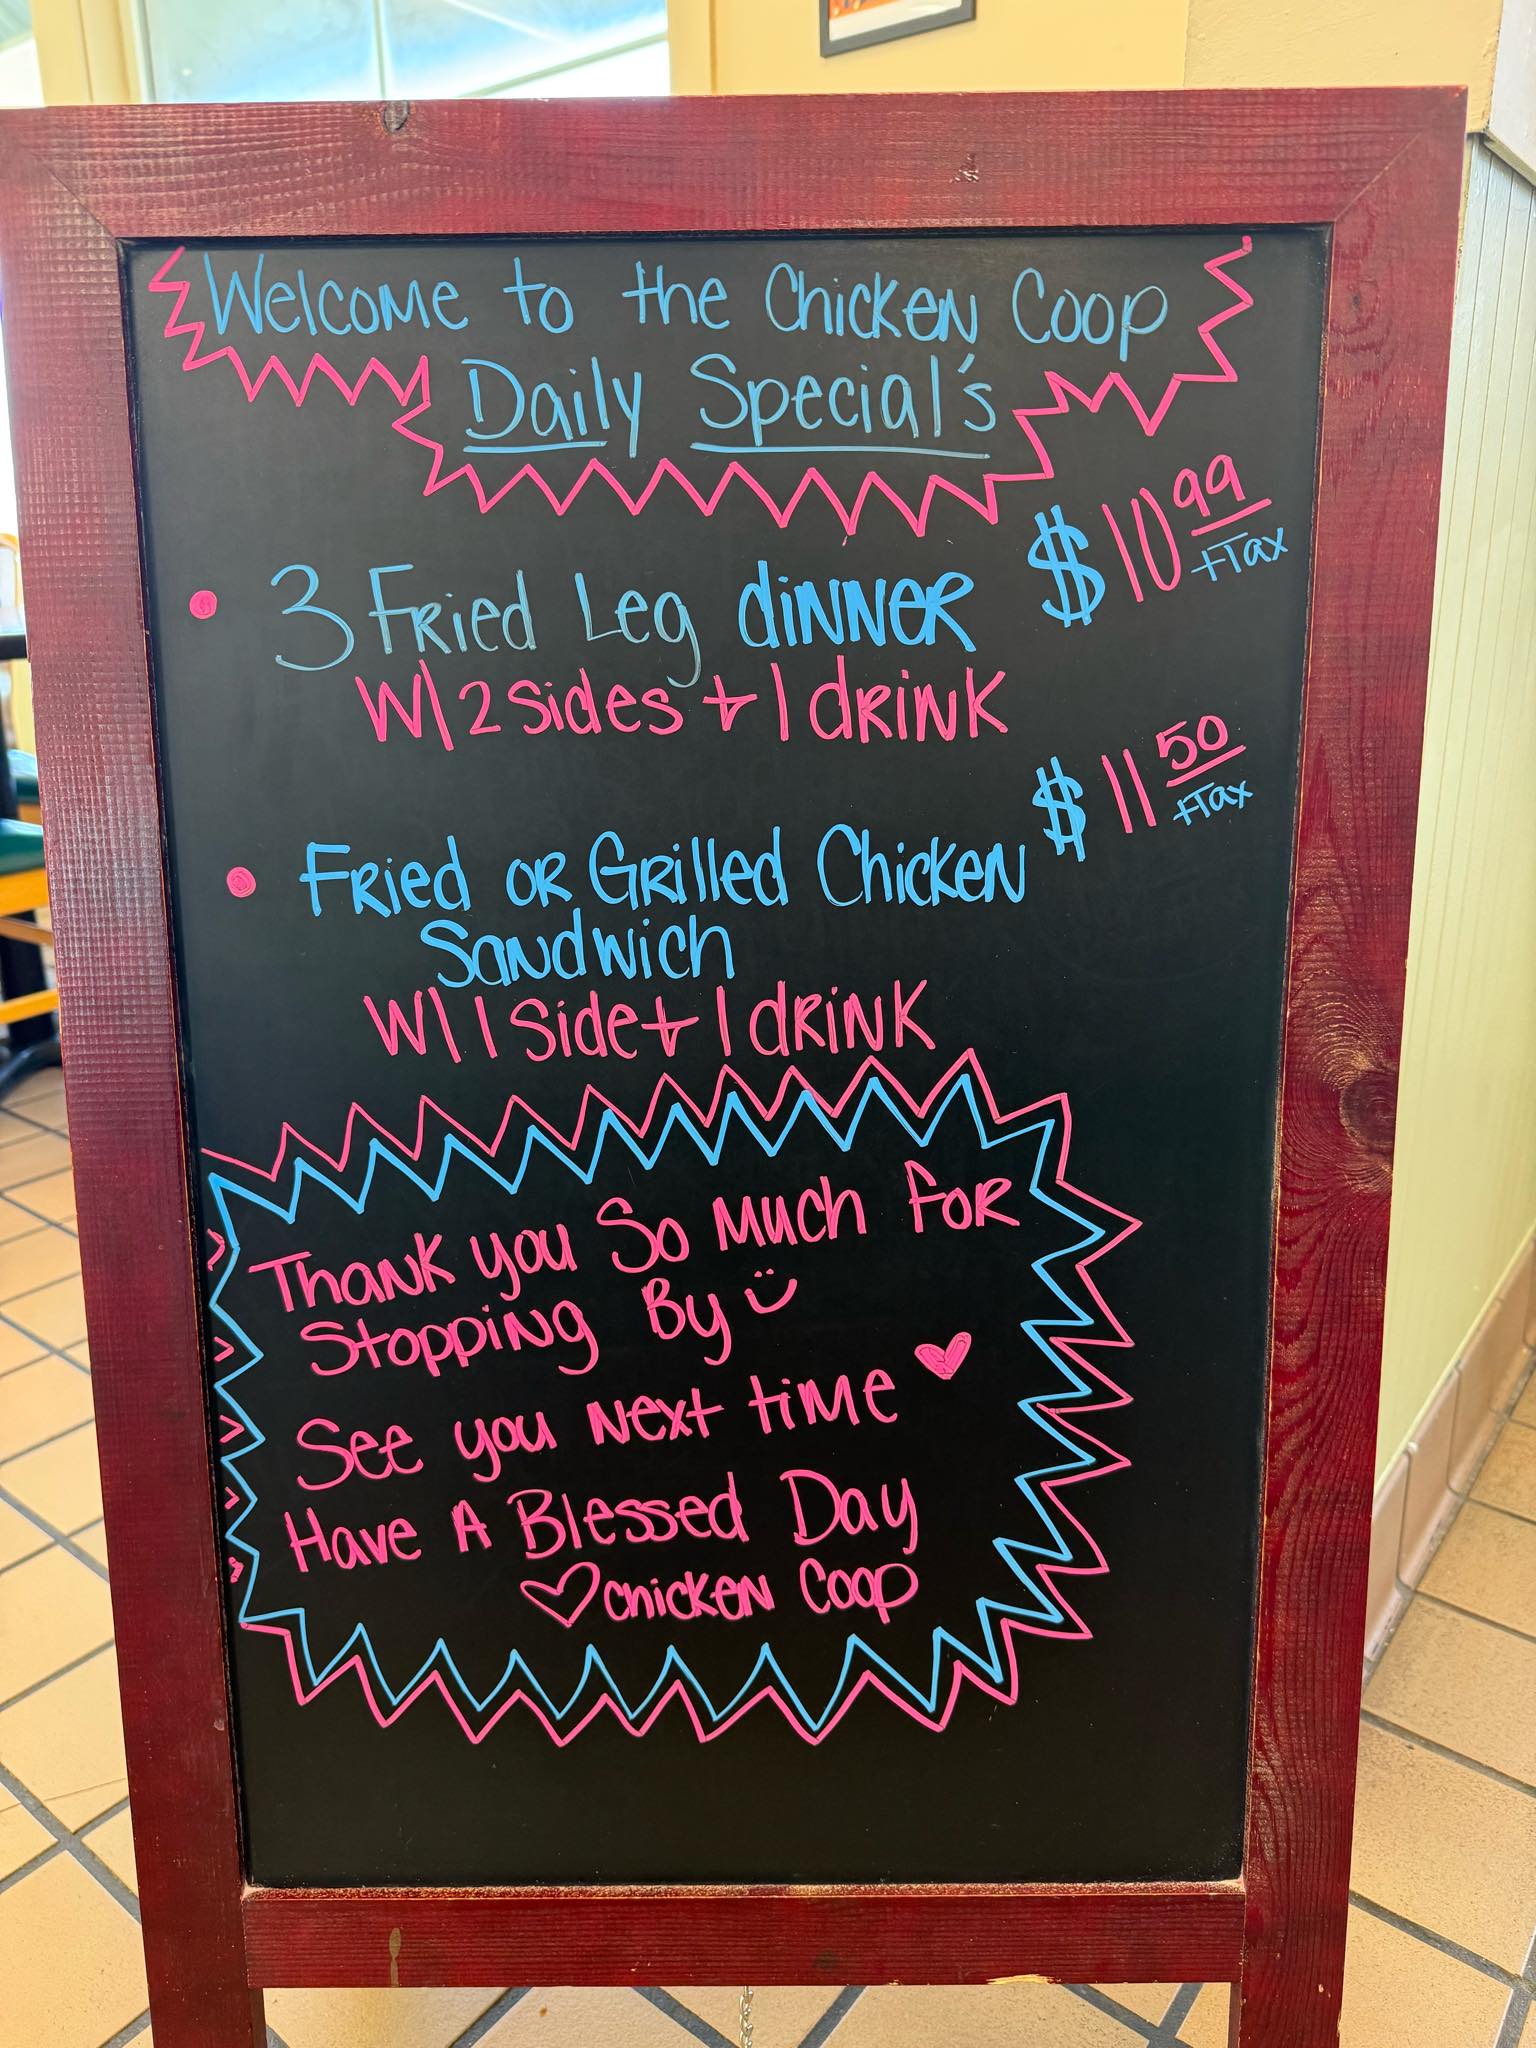 Welcome to the Chicken Coop
Daily Special's
• 3 Fried Leg dinner $10.99 +Tax
W/ 2 sides + 1 drink
• Fried or Grilled Chicken $11.50 +Tax
Sandwich
W/ 1 Side + 1 drink
Thank you So Much for
Stopping By
See you Next time
Have A Blessed Day
Chicken Coop